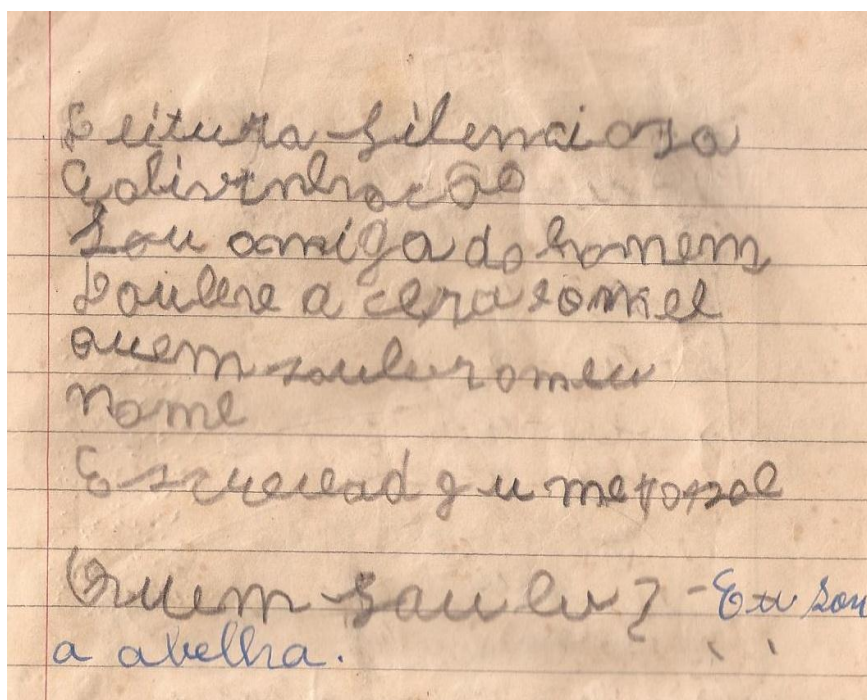 Leitura silenciosa
Adivinhação
Sou amiga do homem
Lou lhe a cera e o mel
quem souber o meu
nome
Escreva d g u me papel
Quem sou eu? - Eu sou
a abelha.